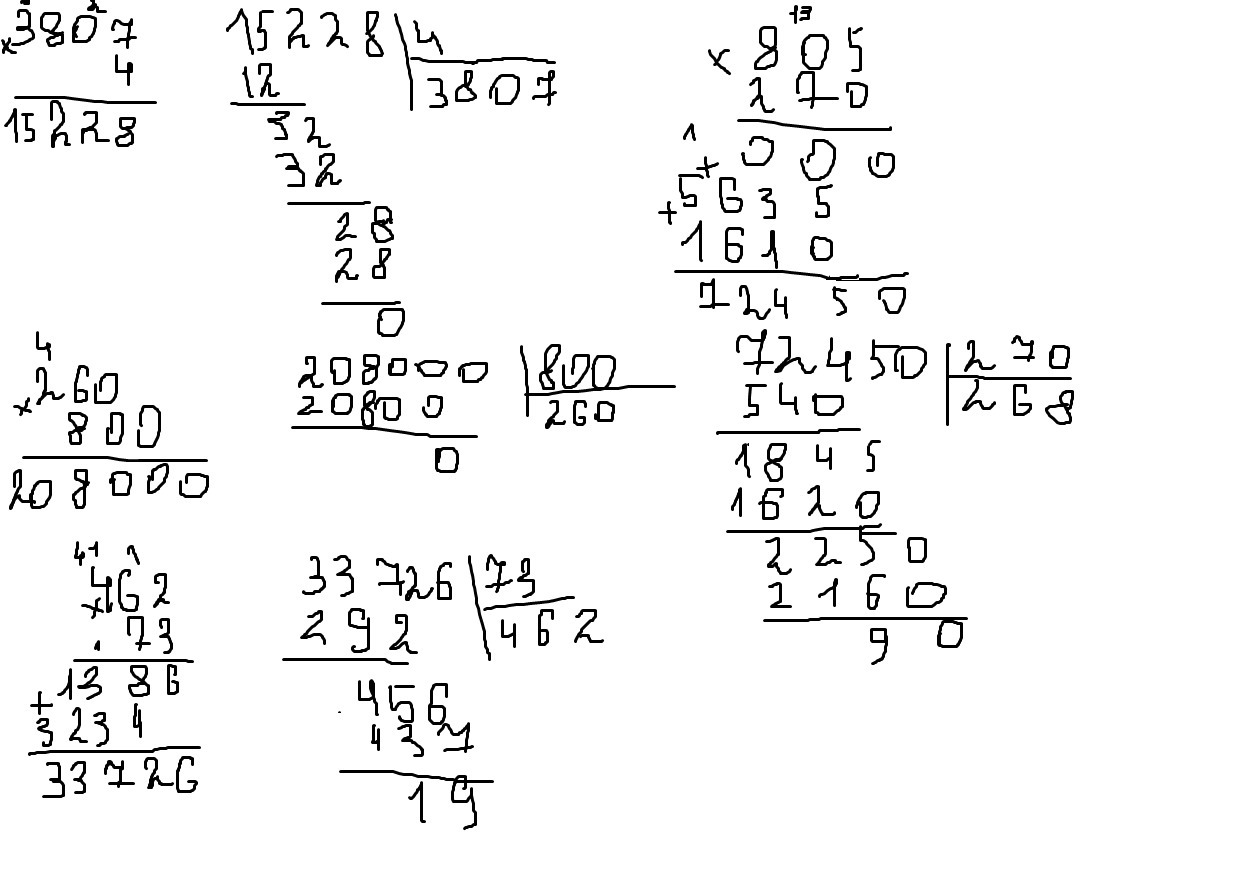 3 2
× 3807
4
15228
15228 4
12 3807
32
32
28
28
0
+3
× 805
270
1
+ 000
+ 5635
1610
72450
4
× 260
800
208000
208000 800
20800 260
0
72450 270
540 268
1845
1620
2250
2160
90
4 1 1
× 462
73
1386
+ 3234
33726
33726 73
292 462
456
437
19